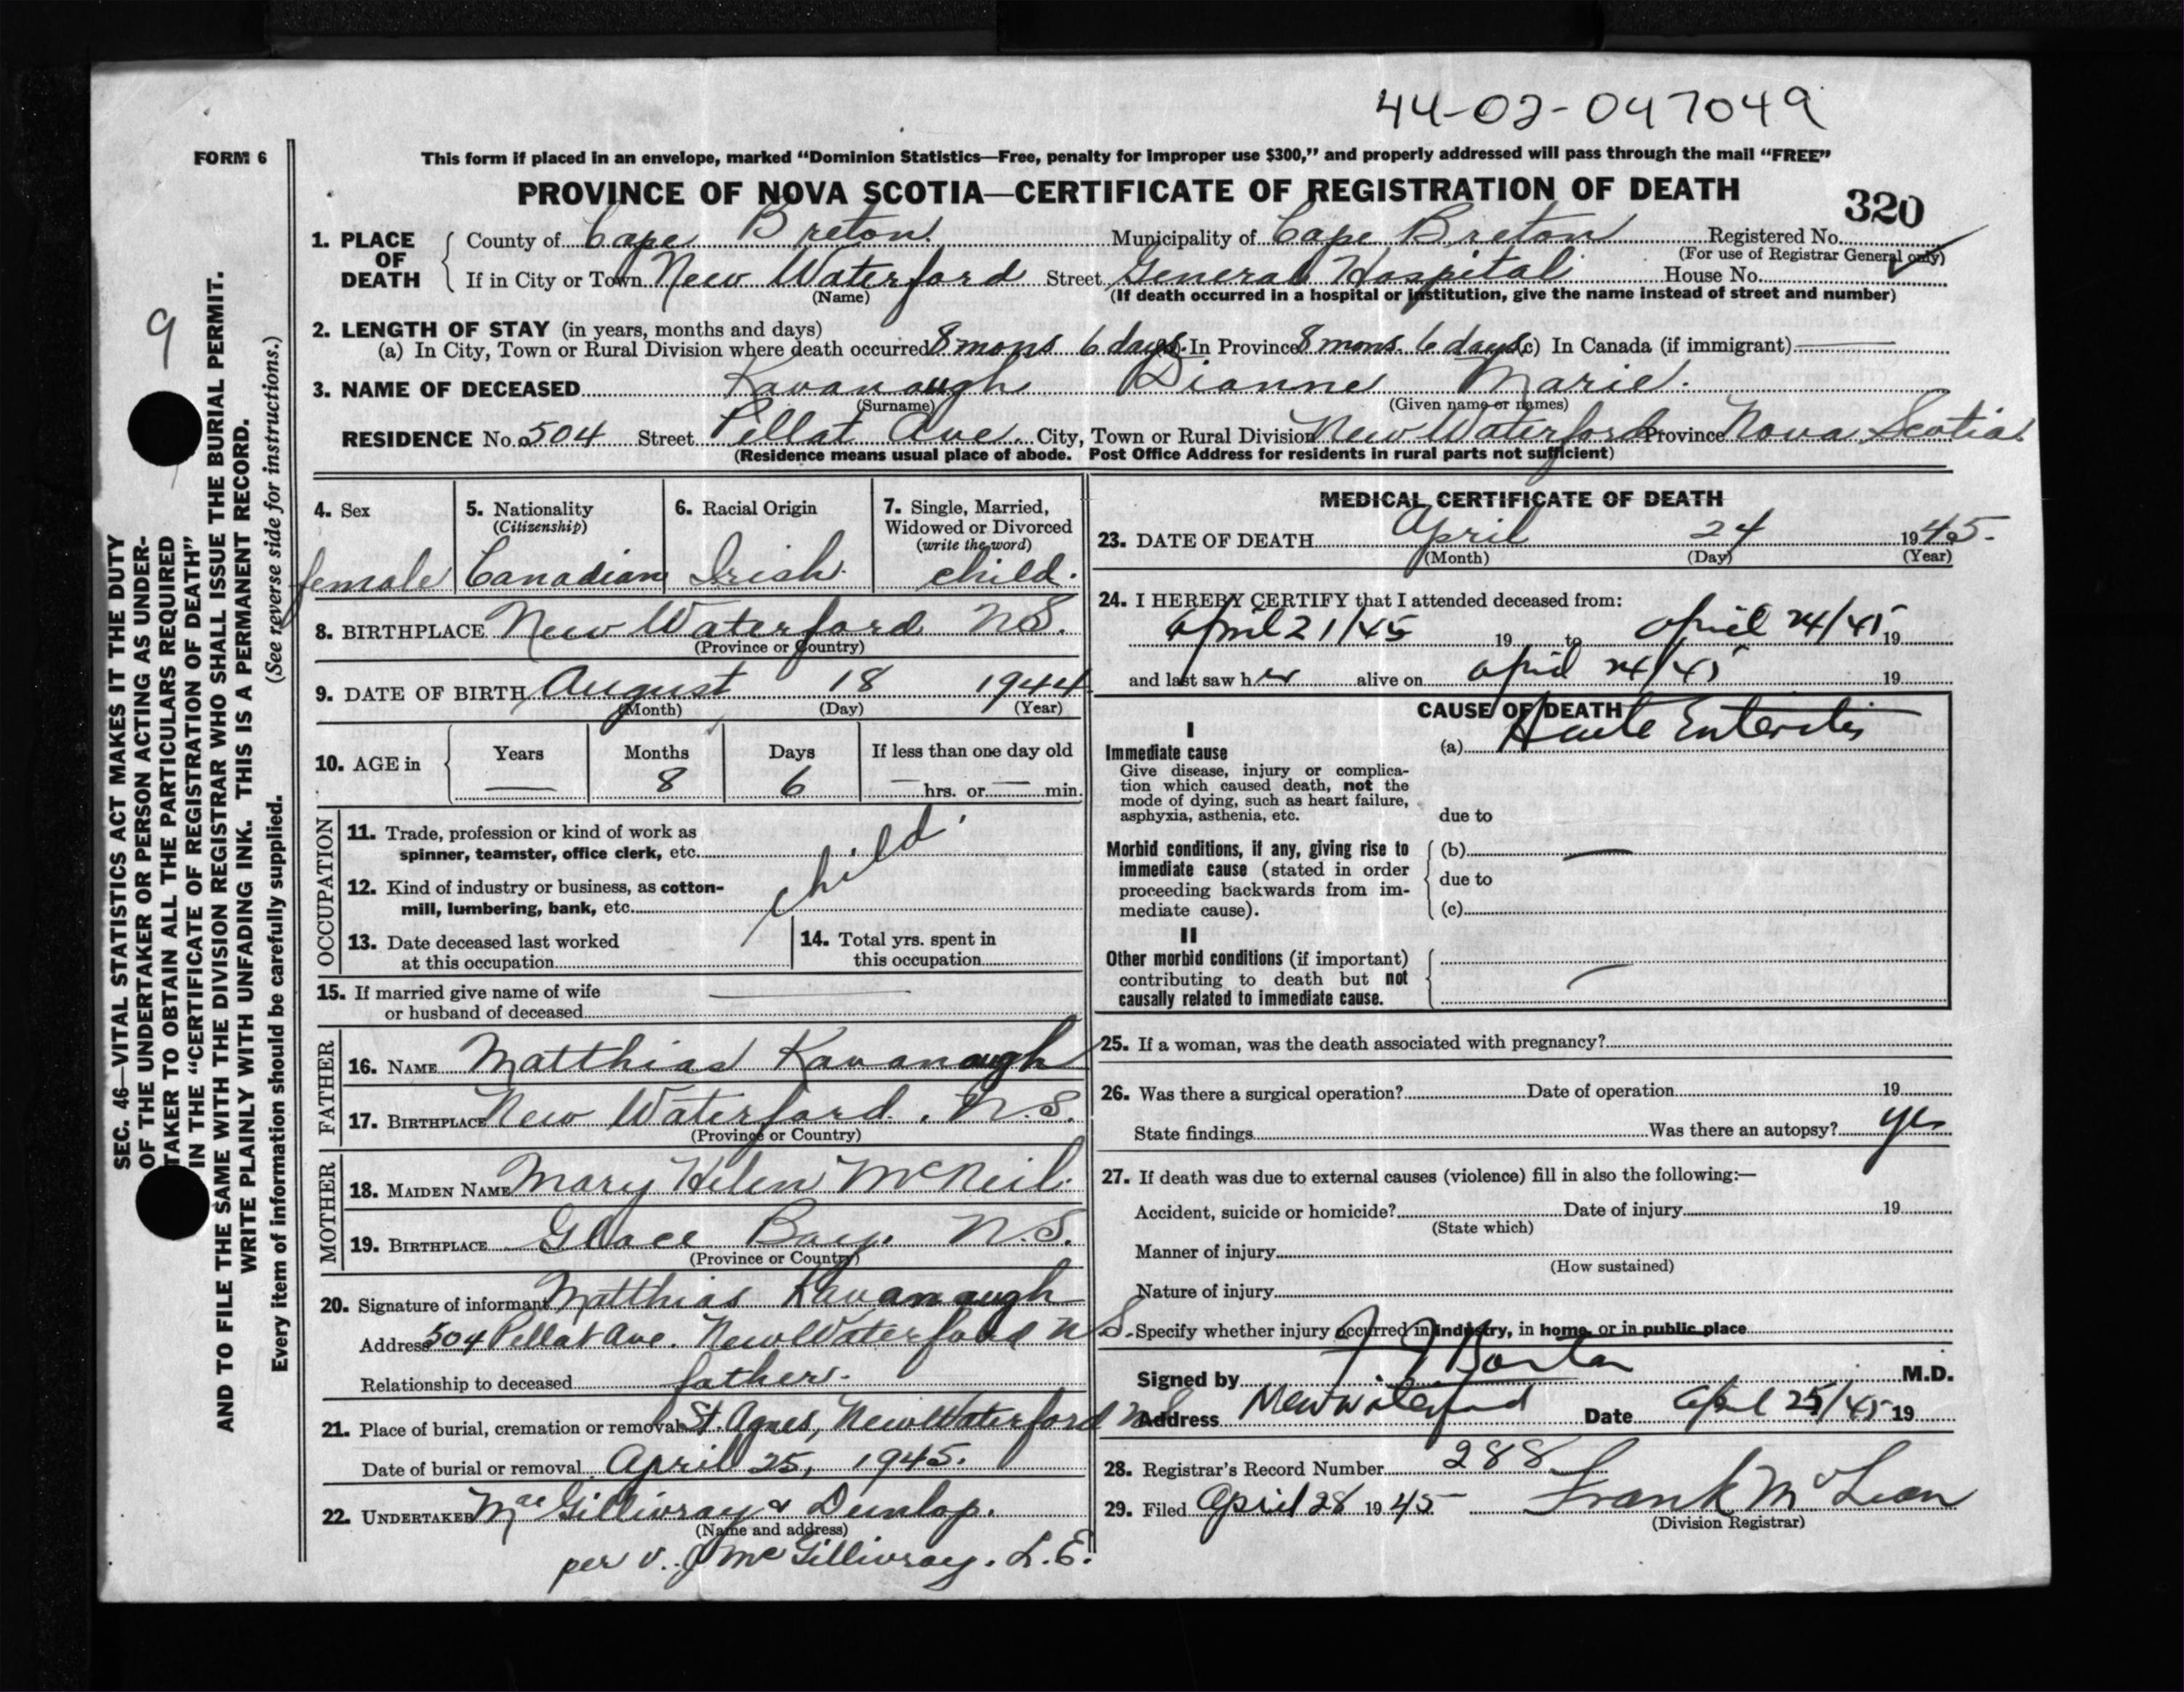 44-02-047049
FORM 6
This form if placed in an envelope, marked “Dominion Statistics—Free, penalty for improper use $300,” and properly addressed will pass through the mail “FREE”
PROVINCE OF NOVA SCOTIA—CERTIFICATE OF REGISTRATION OF DEATH
320
1. PLACE OF DEATH { County of Cape Breton. Municipality of Cape Breton Registered No.
(For use of Registrar General only)
If in City or Town New Waterford Street General Hospital House No.
(Name) (If death occurred in a hospital or institution, give the name instead of street and number)
2. LENGTH OF STAY (in years, months and days)
(a) In City, Town or Rural Division where death occurred 8 mons 6 days In Province 8 mons. 6 days (c) In Canada (if immigrant) —
3. NAME OF DECEASED Kavanaugh Dianne Marie.
(Surname) (Given name or names)
RESIDENCE No. 504 Street Pellat Ave. City, Town or Rural Division New Waterford Province Nova Scotia.
(Residence means usual place of abode. Post Office Address for residents in rural parts not sufficient)
9
SEC. 46—VITAL STATISTICS ACT MAKES IT THE DUTY
OF THE UNDERTAKER OR PERSON ACTING AS UNDER-
TAKER TO OBTAIN ALL THE PARTICULARS REQUIRED
IN THE “CERTIFICATE OF REGISTRATION OF DEATH”
AND TO FILE THE SAME WITH THE DIVISION REGISTRAR WHO SHALL ISSUE THE BURIAL PERMIT.
WRITE PLAINLY WITH UNFADING INK. THIS IS A PERMANENT RECORD.
Every item of information should be carefully supplied. (See reverse side for instructions.)
4. Sex female
5. Nationality (Citizenship) Canadian
6. Racial Origin Irish.
7. Single, Married, Widowed or Divorced (write the word) child.
8. BIRTHPLACE New Waterford NS.
(Province or Country)
9. DATE OF BIRTH August 18 1944
(Month) (Day) (Year)
10. AGE in { Years — Months 8 Days 6 If less than one day old — hrs. or — min.
OCCUPATION
11. Trade, profession or kind of work as
spinner, teamster, office clerk, etc.
child
12. Kind of industry or business, as cotton-
mill, lumbering, bank, etc.
13. Date deceased last worked
at this occupation
14. Total yrs. spent in
this occupation
15. If married give name of wife
or husband of deceased —
FATHER
16. NAME Matthias Kavanaugh
17. BIRTHPLACE New Waterford. N.S.
(Province or Country)
MOTHER
18. MAIDEN NAME Mary Helen McNeil.
19. BIRTHPLACE Glace Bay. N.S.
(Province or Country)
20. Signature of informant Matthias Kavanaugh
Address 504 Pellat Ave. New Waterford NS.
Relationship to deceased father.
21. Place of burial, cremation or removal St. Agnes, New Waterford NS
Date of burial or removal April 25, 1945.
22. UNDERTAKER MacGillivray & Dunlop.
(Name and address)
per V. J McGillivray. L.E.
MEDICAL CERTIFICATE OF DEATH
23. DATE OF DEATH April 24 1945.
(Month) (Day) (Year)
24. I HEREBY CERTIFY that I attended deceased from:
April 21/45 19 to April 24/45 19
and last saw her alive on April 24/45 19
CAUSE OF DEATH
I
Immediate cause
Give disease, injury or complica-
tion which caused death, not the
mode of dying, such as heart failure,
asphyxia, asthenia, etc.
(a) Acute Enteritis
due to
Morbid conditions, if any, giving rise to
immediate cause (stated in order
proceeding backwards from im-
mediate cause).
(b) —
due to
(c)
II
Other morbid conditions (if important)
contributing to death but not
causally related to immediate cause.
—
25. If a woman, was the death associated with pregnancy?
26. Was there a surgical operation? Date of operation 19
State findings Was there an autopsy? yes
27. If death was due to external causes (violence) fill in also the following:—
Accident, suicide or homicide? Date of injury 19
(State which)
Manner of injury
(How sustained)
Nature of injury
Specify whether injury occurred in industry, in home, or in public place
Signed by M.D.
Address New Waterford Date April 25/45 19
28. Registrar's Record Number 288
29. Filed April 28 1945 Frank McLean
(Division Registrar)